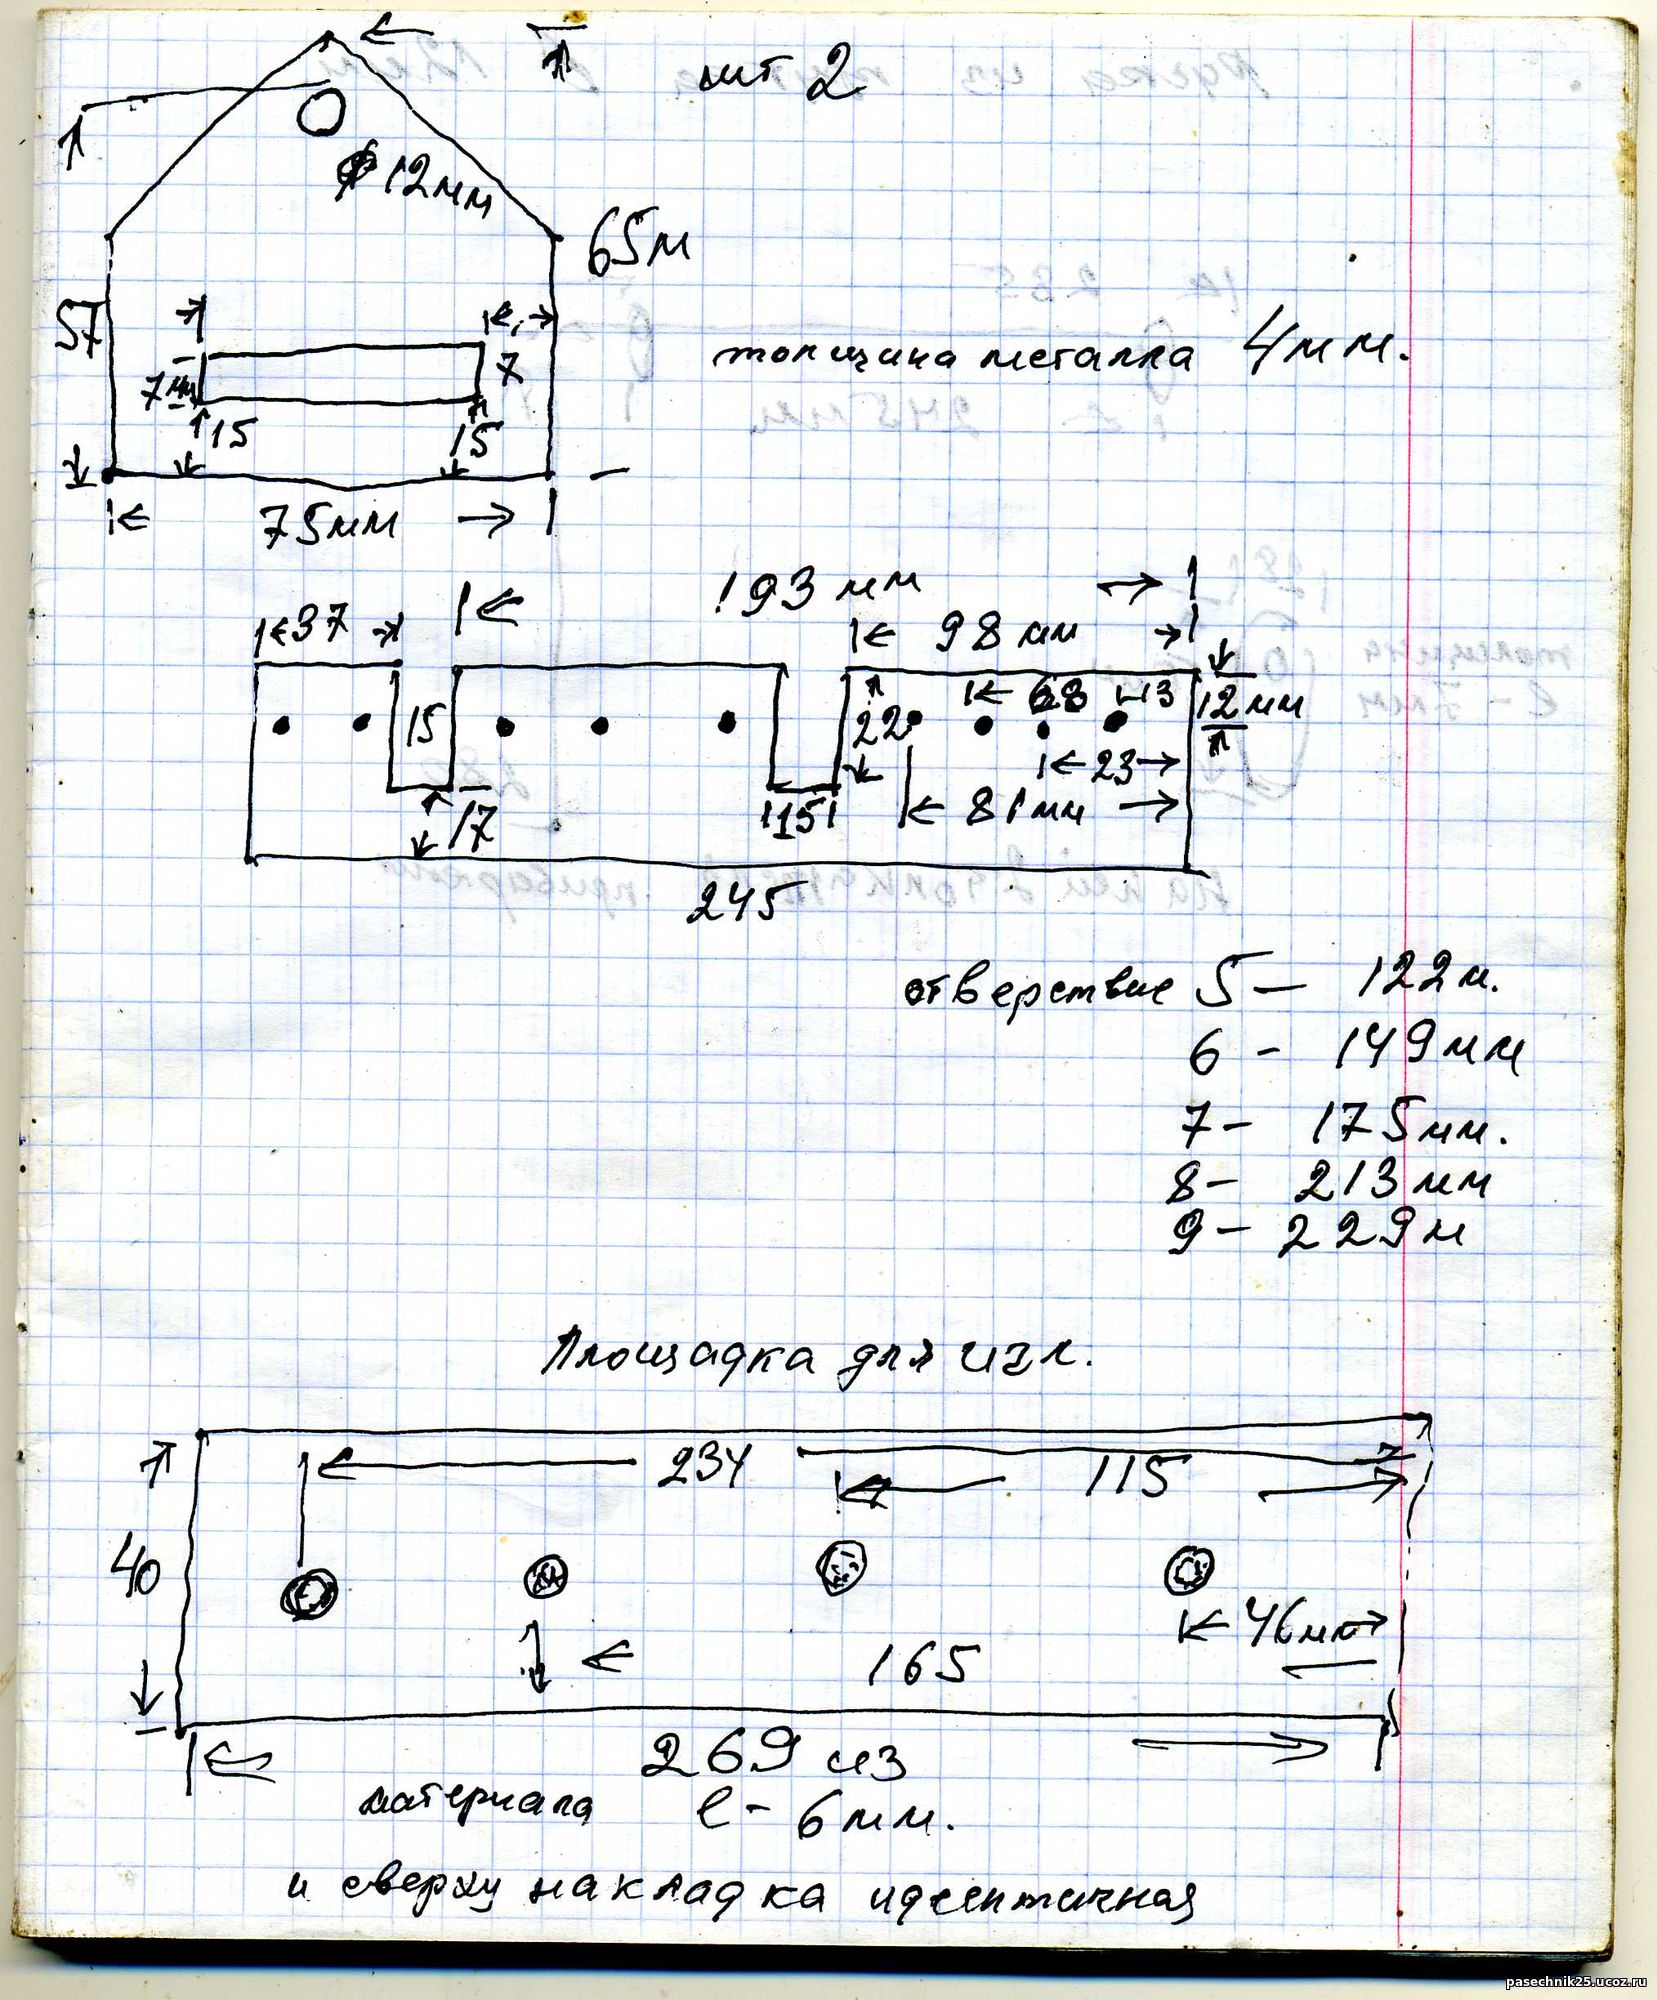 шт 2
⌀ 12мм
65м
57
7
7мм
15
15
толщина металла 4мм.
75мм
193 мм
37
98 мм
68
13
12мм
15
22
23
17
15
81мм
245
отверствие 5 – 122м.
6 – 149мм
7 – 175мм.
8 – 213мм
9 – 229м
Площадка для изг.
234
115
40
46мм
165
269 из
материала ℓ – 6мм.
и сверху накладка идентичная
pasechnik25.ucoz.ru